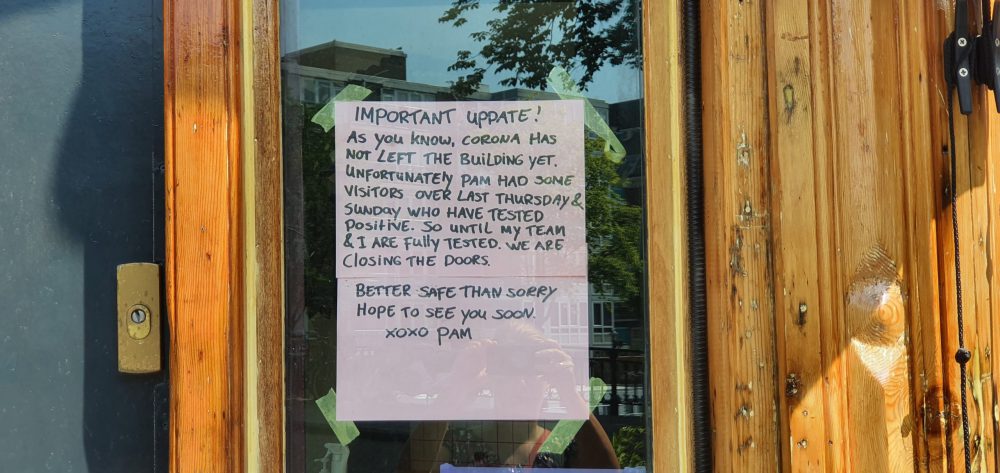 IMPORTANT UPDATE!
AS YOU KNOW, CORONA HAS
NOT LEFT THE BUILDING YET.
UNFORTUNATELY PAM HAD SOME
VISITORS OVER LAST THURSDAY &
SUNDAY WHO HAVE TESTED
POSITIVE. SO UNTIL MY TEAM
& I ARE FULLY TESTED. WE ARE
CLOSING THE DOORS.
BETTER SAFE THAN SORRY
HOPE TO SEE YOU SOON.
XOXO PAM